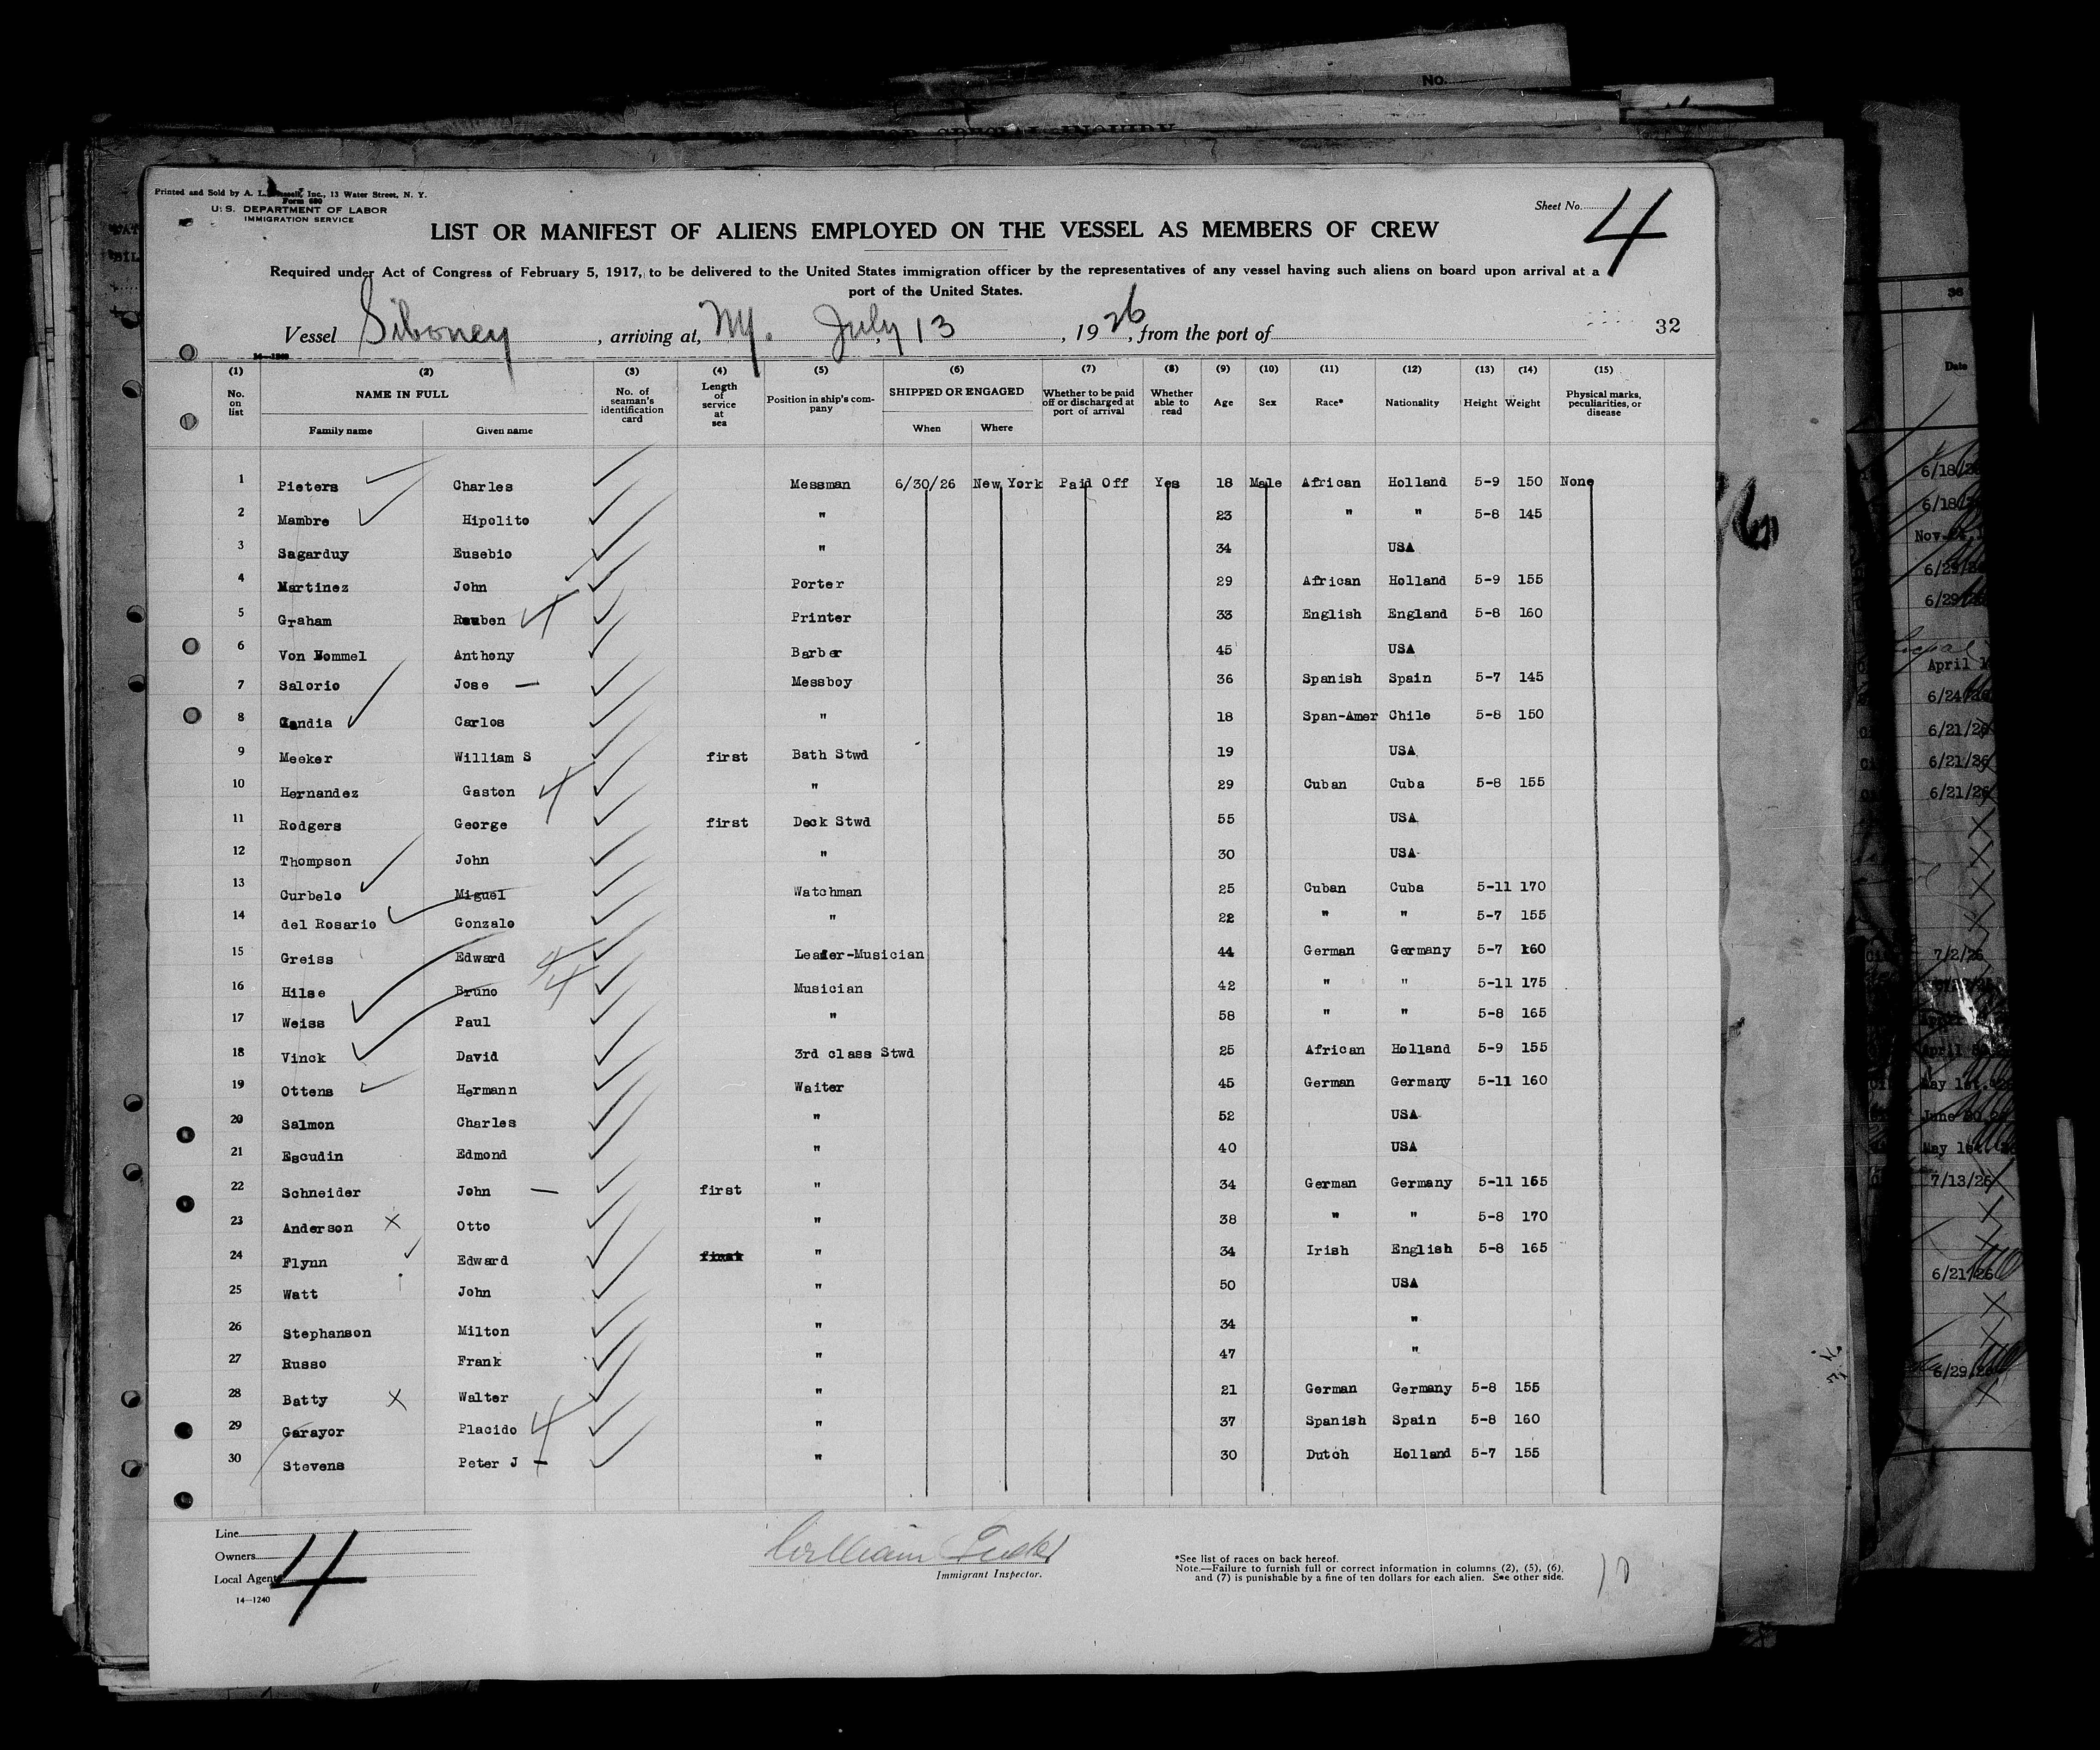 No.
Printed and Sold by A. L. Inc., 13 Water Street, N. Y.
Form 680
U. S. DEPARTMENT OF LABOR
IMMIGRATION SERVICE
Sheet No. 4
LIST OR MANIFEST OF ALIENS EMPLOYED ON THE VESSEL AS MEMBERS OF CREW
Required under Act of Congress of February 5, 1917, to be delivered to the United States immigration officer by the representatives of any vessel having such aliens on board upon arrival at a
port of the United States.
Vessel Siboney, arriving at, NY. July 13, 1926, from the port of 32
14-1240
(1) (2) (3) (4) (5) (6) (7) (8) (9) (10) (11) (12) (13) (14) (15)
No. on list NAME IN FULL No. of seaman's identification card Length of service at sea Position in ship's company SHIPPED OR ENGAGED Whether to be paid off or discharged at port of arrival Whether able to read Age Sex Race* Nationality Height Weight Physical marks, peculiarities, or disease
Family name Given name When Where
1 Pieters Charles Messman 6/30/26 New York Paid Off Yes 18 Male African Holland 5-9 150 None
2 Mambre Hipolito " 23 " " 5-8 145
3 Sagarduy Eusebio " 34 USA
4 Martinez John Porter 29 African Holland 5-9 155
5 Graham Reuben Printer 33 English England 5-8 160
6 Von Bommel Anthony Barber 45 USA
7 Salorio Jose Messboy 36 Spanish Spain 5-7 145
8 Gandia Carlos " 18 Span-Amer Chile 5-8 150
9 Meeker William S first Bath Stwd 19 USA
10 Hernandez Gaston " 29 Cuban Cuba 5-8 155
11 Rodgers George first Deck Stwd 55 USA
12 Thompson John " 30 USA
13 Curbelo Miguel Watchman 25 Cuban Cuba 5-11 170
14 del Rosario Gonzalo " 22 " " 5-7 155
15 Greiss Edward Leader-Musician 44 German Germany 5-7 160
16 Hilse Bruno Musician 42 " " 5-11 175
17 Weiss Paul " 58 " " 5-8 165
18 Vinck David 3rd class Stwd 25 African Holland 5-9 155
19 Ottens Hermann Waiter 45 German Germany 5-11 160
20 Salmon Charles " 52 USA
21 Escudin Edmond " 40 USA
22 Schneider John first " 34 German Germany 5-11 165
23 Anderson Otto " 38 " " 5-8 170
24 Flynn Edward first " 34 Irish English 5-8 165
25 Watt John " 50 USA
26 Stephanson Milton " 34 "
27 Russo Frank " 47 "
28 Batty Walter " 21 German Germany 5-8 155
29 Garayor Placido " 37 Spanish Spain 5-8 160
30 Stevens Peter J " 30 Dutch Holland 5-7 155
Line
Owners
Local Agents 4
14-1240
William
Immigrant Inspector.
*See list of races on back hereof.
Note.—Failure to furnish full or correct information in columns (2), (5), (6),
and (7) is punishable by a fine of ten dollars for each alien. See other side.
10
36
Date
6/21/26
6/21/26
6/21/26
7/2/26
7/13/26
6/21/26